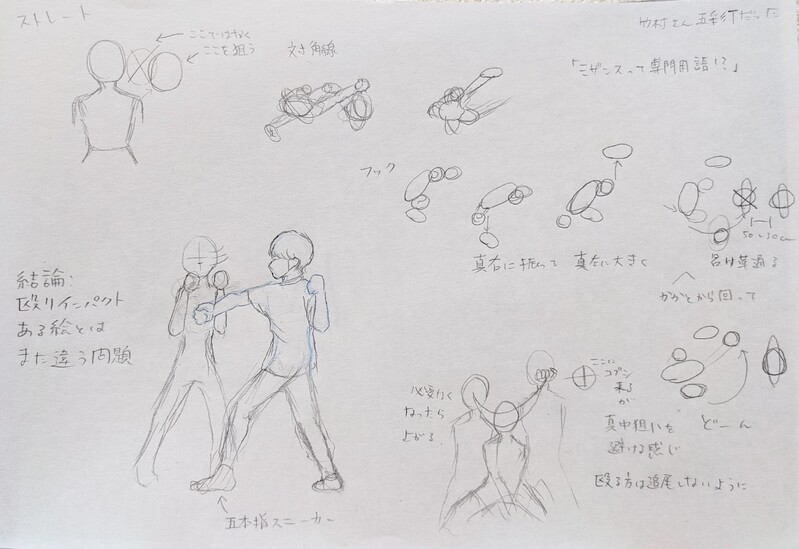 ストレート
ここではなく
ここを狙う
対角線
竹村さん五年行だった
「ミザンスって専門用語!?」
フック
真右に振って
真左に大きく
50〜30cm
かかとから回って
結論:
殴りインパクト
ある絵とは
また違う問題
必要なく
なったら
上がる
ここに
コブシ
来る
が
真中狙いを
避ける感じ
どーん
殴る方は追尾しないように
五本指スニーカー